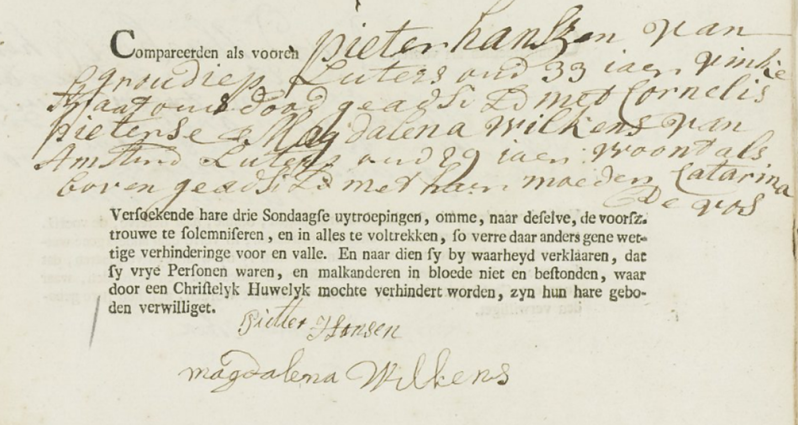 Compareerden als vooren pieter hansen van
groudiep Luters oud 33 iaer vinke
straat ouders dood geadst Ed met Cornelis
pieterse & Magdalena wilkens van
Amsterd Luters oud 29 iaer woont als
boven geadst Ed met haer moeder Catarina
De vos
Versoekende hare drie Sondaagse uytroepingen, omme, naar deselve, de voorsz.
trouwe te solemniseren, en in alles te voltrekken, so verre daar anders gene wet-
tige verhinderinge voor en valle. En naar dien sy by waarheyd verklaaren, dat
sy vrye Personen waren, en malkanderen in bloede niet en bestonden, waar
door een Christelyk Huwelyk mochte verhindert worden, zyn hun hare gebo-
den verwilliget.
Pietter Hansen
magdalena Wilkens